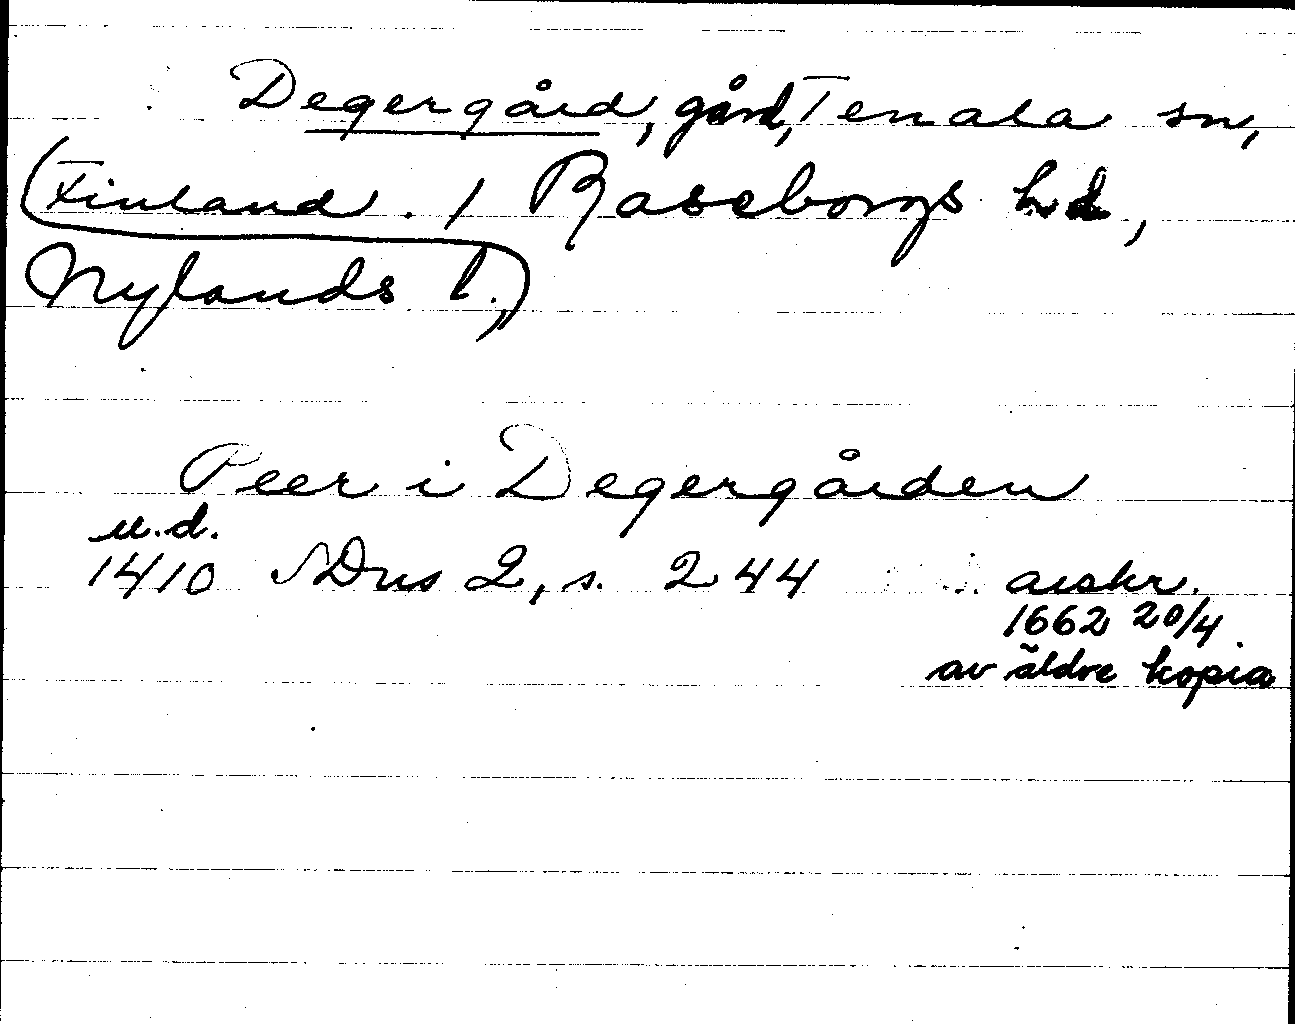 Degergård, gård, Tenala sn,
(Finland. / Raseborgs hd,
Nylands l.,)
Peer i Degergården
u.d.
1410 SDns 2, s. 244 avskr.
1662 20/4
av äldre kopia